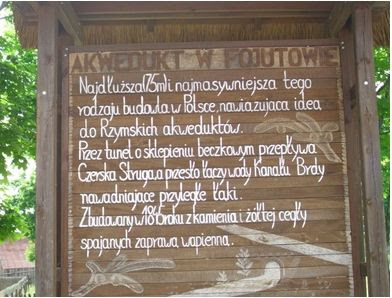 AKWEDUKT W FOJUTOWIE
Najdłuższa(75m) i najmasywniejsza tego
rodzaju budowla w Polsce, nawiązująca ideą
do Rzymskich akweduktów.
Przez tunel o sklepieniu beczkowym przepływa
Czerska Struga, a przęsło łączy wody Kanału Brdy
nawadniające przyległe łąki.
Zbudowany w 1845 roku z kamienia i żółtej cegły
spajanych zaprawą wapienną.